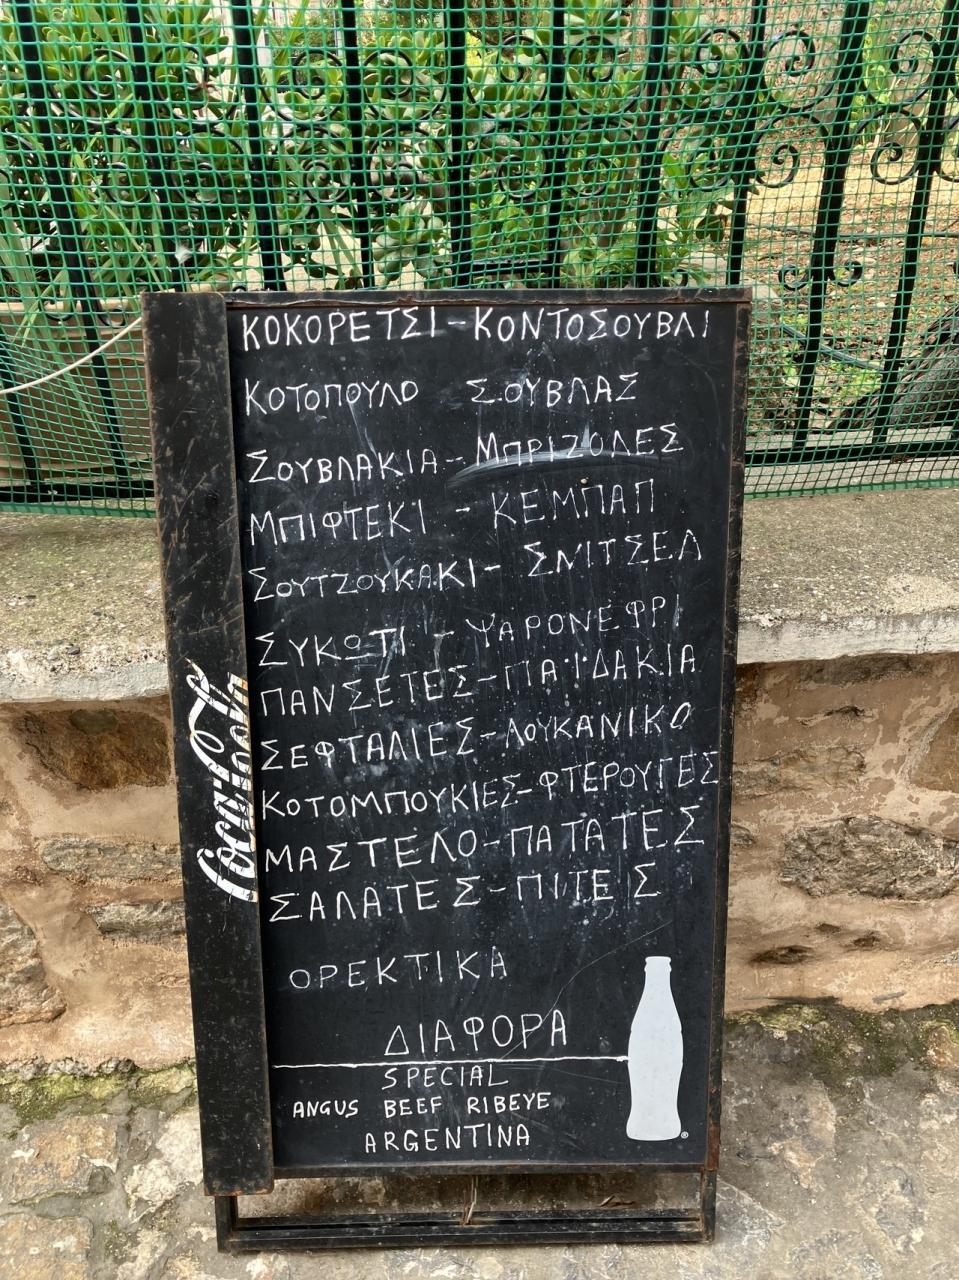 ΚΟΚΟΡΕΤΣΙ - ΚΟΝΤΟΣΟΥΒΛΙ
ΚΟΤΟΠΟΥΛΟ ΣΟΥΒΛΑΣ
ΣΟΥΒΛΑΚΙΑ - ΜΠΡΙΖΟΛΕΣ
ΜΠΙΦΤΕΚΙ - ΚΕΜΠΑΠ
ΣΟΥΤΖΟΥΚΑΚΙ - ΣΝΙΤΣΕΛ
ΣΥΚΩΤΙ - ΨΑΡΟΝΕΦΡΙ
ΠΑΝΣΕΤΕΣ - ΠΑΪΔΑΚΙΑ
ΣΕΦΤΑΛΙΕΣ - ΛΟΥΚΑΝΙΚΟ
ΚΟΤΟΜΠΟΥΚΙΕΣ - ΦΤΕΡΟΥΓΕΣ
ΜΑΣΤΕΛΟ - ΠΑΤΑΤΕΣ
ΣΑΛΑΤΕΣ - ΠΙΤΕΣ
ΟΡΕΚΤΙΚΑ
ΔΙΑΦΟΡΑ
SPECIAL
ANGUS BEEF RIBEYE
ARGENTINA
Coca-Cola
®